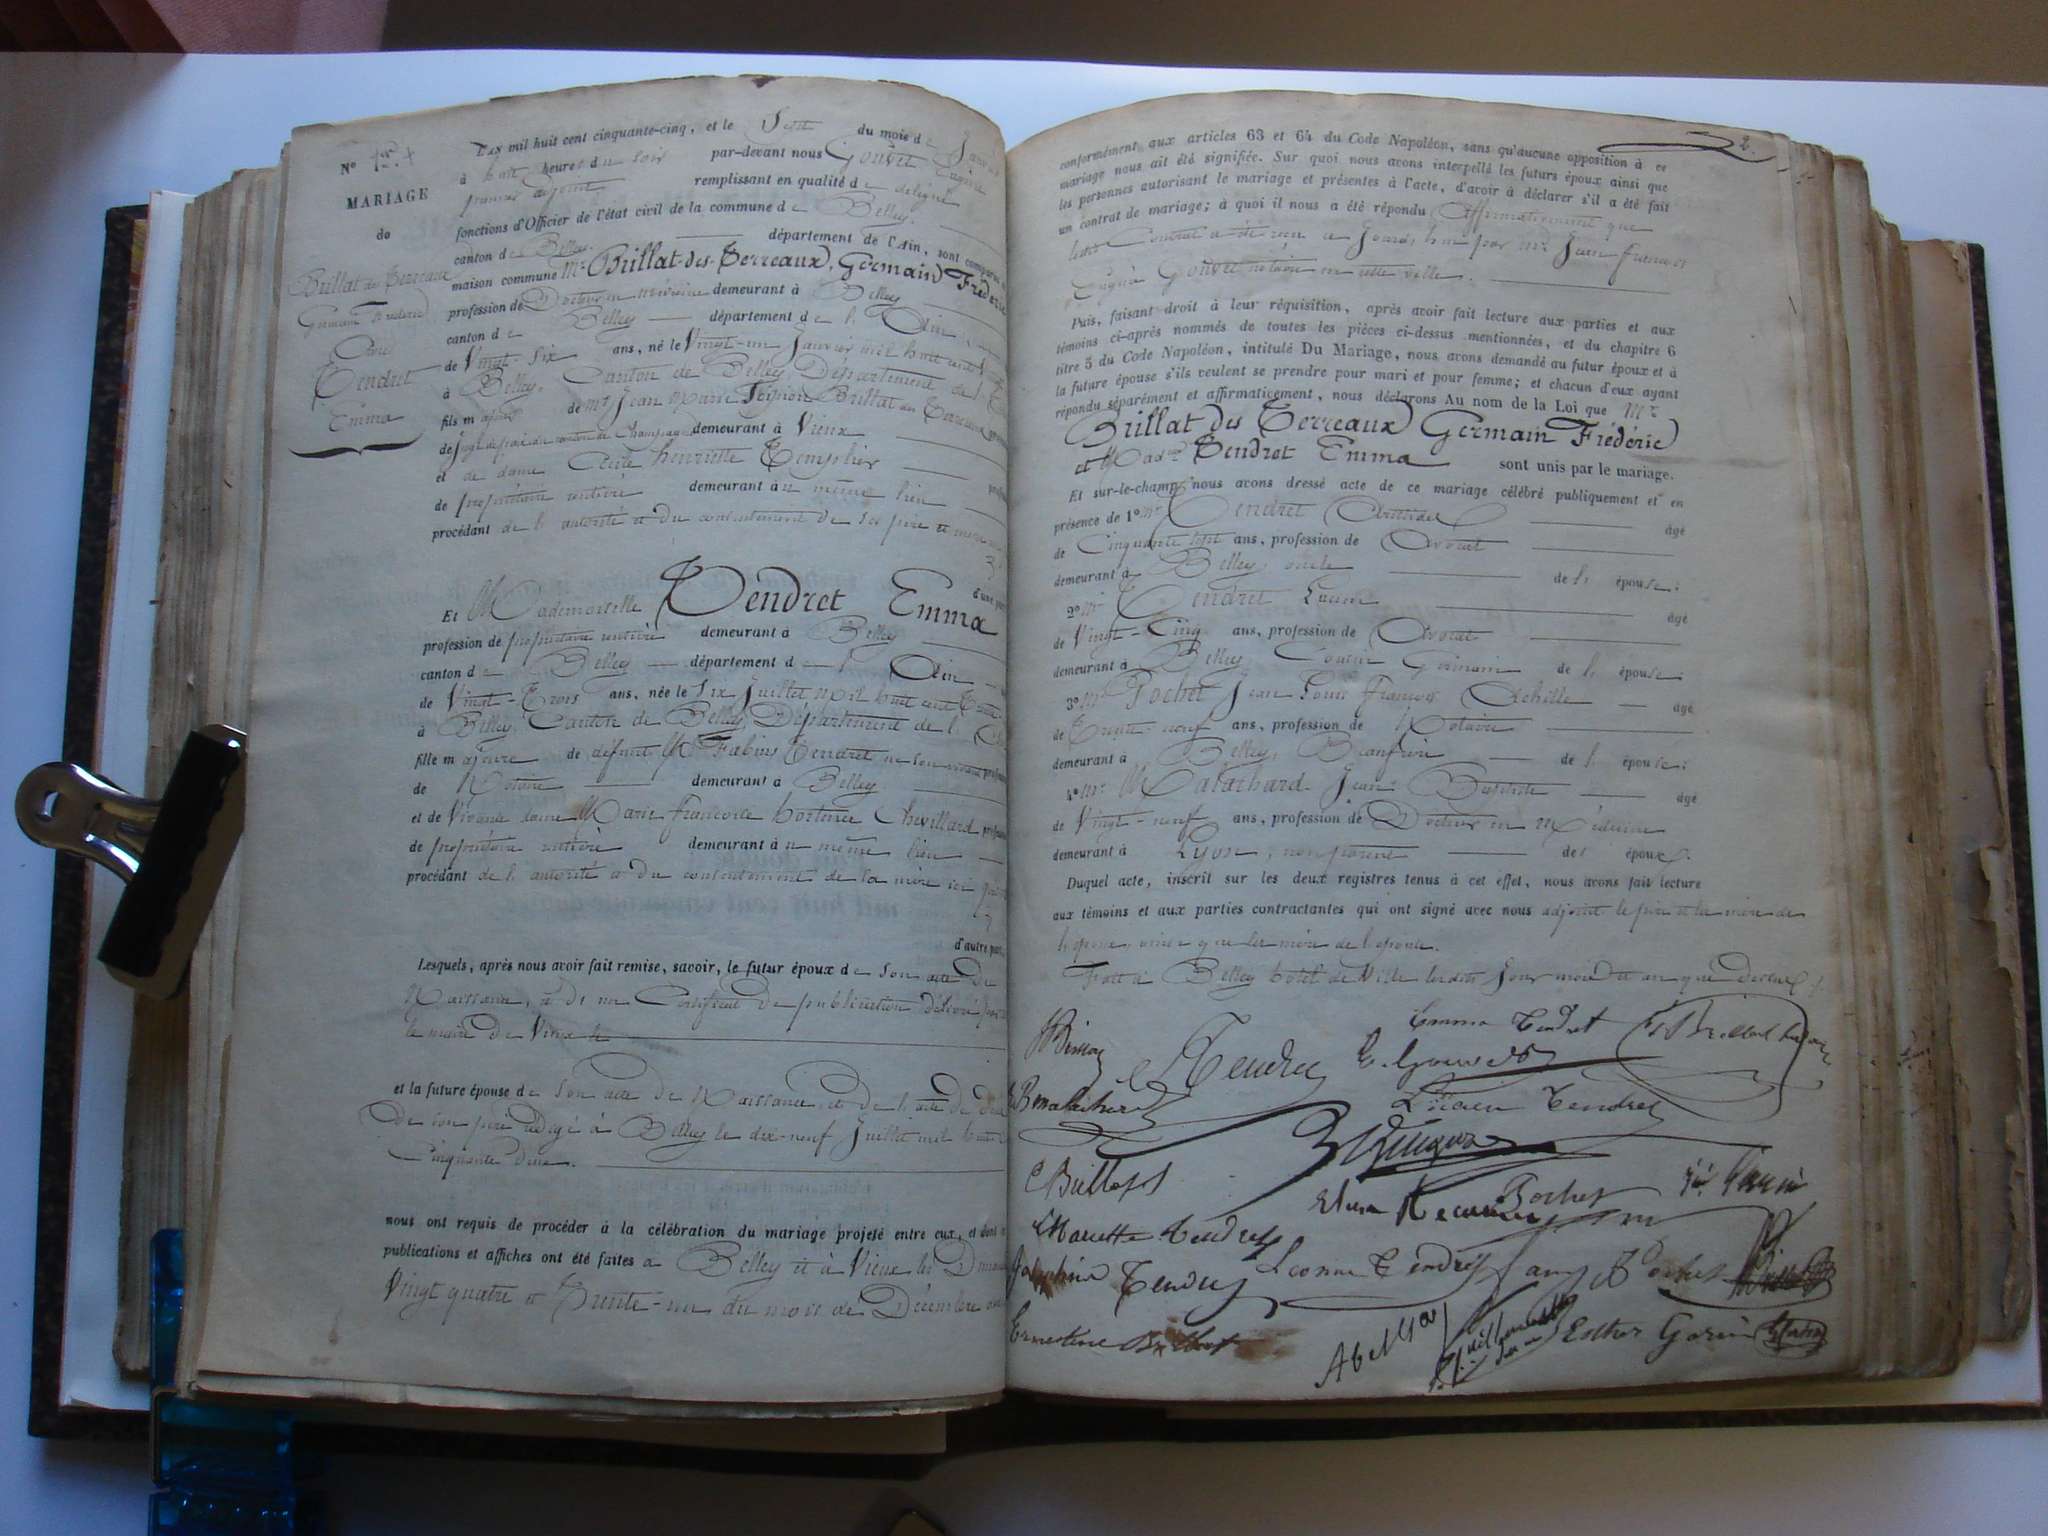 No 1er
MARIAGE
de
Brillat des Terreaux
Germain Frédéric
Avec
Tendret
Emma
L'an mil huit cent cinquante-cinq, et le Sept du mois de Janvier
à huit heures du soir par-devant nous Gouvet Eugène
premier adjoint remplissant en qualité de délégué
fonctions d'Officier de l'état civil de la commune de Belley
canton de Belley département de l'Ain, sont comparus
maison commune Mr Brillat-des-Terreaux, Germain Frédéric
profession de Docteur en médecine demeurant à Belley
canton de Belley département de l'Ain
de Vingt-Six ans, né le Vingt-un Janvier mil huit cent
à Belley, Canton de Belley, Département de l'
fils majeur de Mr Jean Marie Brillat des Terreaux
de Juge de paix du canton de Champagne demeurant à Vieux
et de dame Cécile henriette Templier
de propriétaire rentière demeurant au même lieu
procédant de l'autorité et du consentement de ses père et mère
d'une part
Et Mademoiselle Tendret Emma
profession de propriétaire rentière demeurant à Belley
canton de Belley département de l'Ain
de Vingt-Trois ans, née le Six Juillet mil huit cent Trente
à Belley, Canton de Belley, Département de l'
fille majeure de défunt Mr Fabius Tendret en son vivant
de Notaire demeurant à Belley
et de Vivante dame Marie françoise hortense Chevillard
de propriétaire rentière demeurant au même lieu
procédant de l'autorité et du consentement de sa mère ici
d'autre part
Lesquels, après nous avoir fait remise, savoir, le futur époux de Son acte de
Naissance, et de un Certificat de publication délivré par
le maire de Vieux le
et la future épouse de Son acte de Naissance, et de l'acte de
de son père rédigé à Belley le dix-neuf Juillet mil huit
Cinquante deux.
nous ont requis de procéder à la célébration du mariage projeté entre eux, et dont
publications et affiches ont été faites à Belley et à Vieux les
Vingt quatre et Trente-un du mois de Décembre
2.
conformément aux articles 63 et 64 du Code Napoléon, sans qu'aucune opposition à ce
mariage nous ait été signifiée. Sur quoi nous avons interpellé les futurs époux ainsi que
les personnes autorisant le mariage et présentes à l'acte, d'avoir à déclarer s'il a été fait
un contrat de mariage; à quoi il nous a été répondu Affirmativement que
leur Contrat a été reçu ce Jourd'hui par Mr Jean françois
Eugène Gouvet notaire en cette ville.
Puis, faisant droit à leur réquisition, après avoir fait lecture aux parties et aux
témoins ci-après nommés de toutes les pièces ci-dessus mentionnées, et du chapitre 6
titre 5 du Code Napoléon, intitulé Du Mariage, nous avons demandé au futur époux et à
la future épouse s'ils veulent se prendre pour mari et pour femme; et chacun d'eux ayant
répondu séparément et affirmativement, nous déclarons Au nom de la Loi que Mr
Brillat des Terreaux Germain Frédéric
et Madlle Tendret Emma sont unis par le mariage.
Et sur-le-champ nous avons dressé acte de ce mariage célébré publiquement et en
présence de 1º Mr Tendret Aristide âgé
de Cinquante sept ans, profession de Avocat
demeurant à Belley, oncle de l' épouse;
2º Mr Tendret Lucien âgé
de Vingt-Cinq ans, profession de Avocat
demeurant à Belley, Cousin Germain de l' épouse;
3º Mr Pochet Jean Louis François Achille âgé
de Trente-neuf ans, profession de Notaire
demeurant à Belley, Beaufrère de l' épouse;
4º Mr Jean Baptiste âgé
de Vingt-neuf ans, profession de Docteur en Médecine
demeurant à Lyon, non parent des époux.
Duquel acte, inscrit sur les deux registres tenus à cet effet, nous avons fait lecture
aux témoins et aux parties contractantes qui ont signé avec nous adjoint le père et la mère de
l'époux, ainsi que la mère de l'épouse.
Fait à Belley hôtel de Ville lesdits Jour mois et an que dessus.
Emma Tendret
Tendret E. Gouvet
Lucien Tendret
Pochet
Mariette Tendret
Joséphine Tendret Léonie Tendret fany Pochet
Ernestine Brillat
Esther Gorin